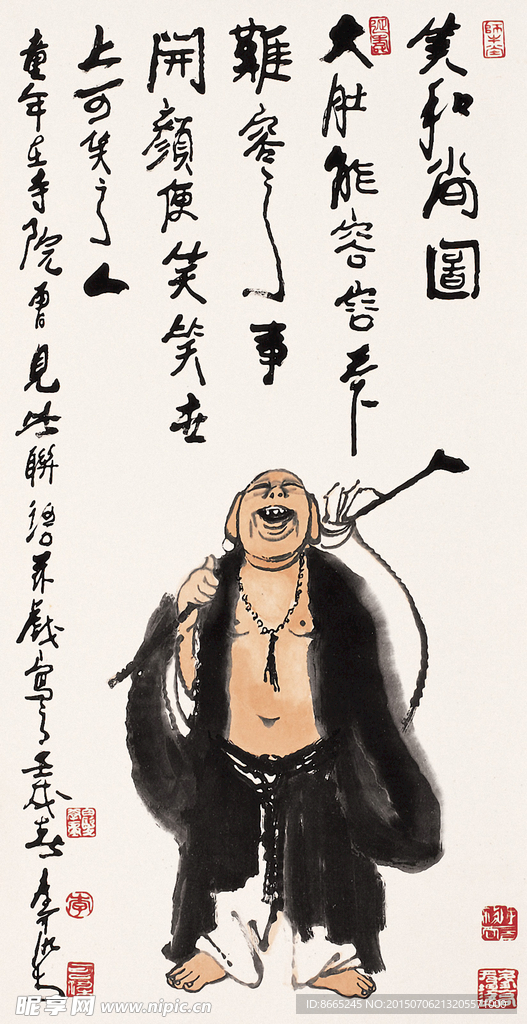 笑和尚圖
大肚能容容天下
難容之事
開顏便笑笑世
上可笑之人
童年在寺院曾見此聯語并戲寫之壬戌春
昵享网 www.nipic.cn
ID:8665245 NO:20150706213205571000